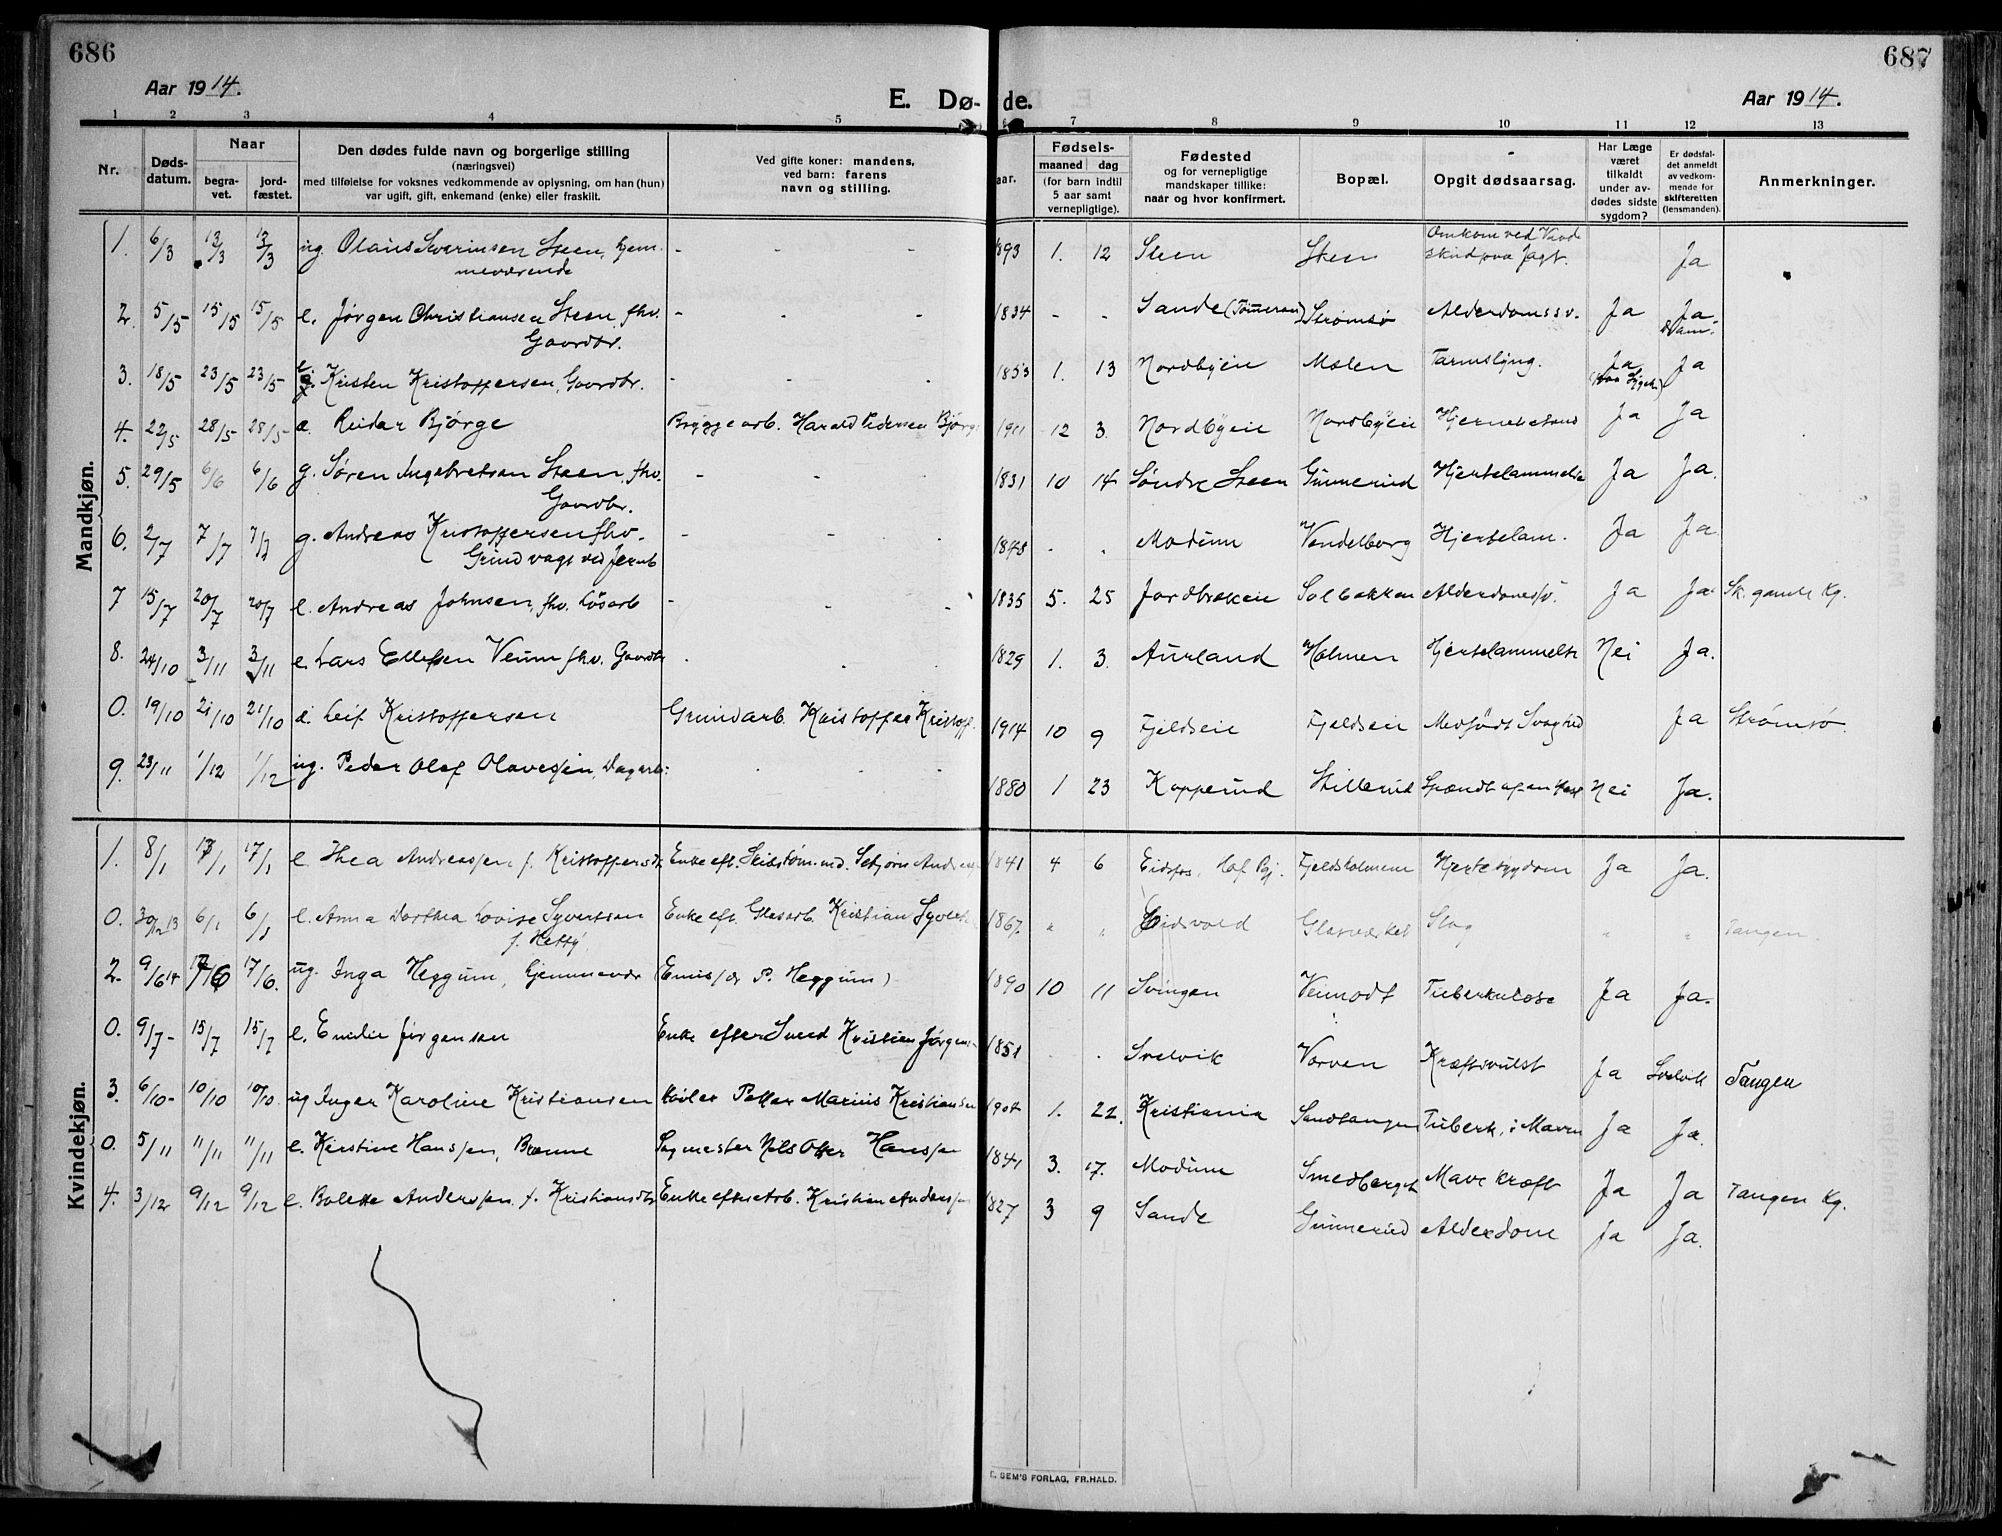 686
687
Aar 1914.
E. Dø- de.
Aar 1914.
1 2 3 4 5 7 8 9 10 11 12 13
Nr.
Døds-
datum.
Naar
begra-
vet.
jord-
fæstet.
Den dødes fulde navn og borgerlige stilling
(næringsvei)
med tilføielse for voksnes vedkommende av oplysning, om han (hun)
var ugift, gift, enkemand (enke) eller fraskilt.
Ved gifte koner: mandens,
ved barn: farens
navn og stilling.
aar.
Fødsels-
maaned dag
(for barn indtil
5 aar samt
vernepligtige).
Fødested
og for vernepligtige
mandskaper tillike:
naar og hvor konfirmert.
Bopæl.
Opgit dødsaarsag.
Har Læge
været
tilkaldt
under av-
dødes sidste
sygdom?
Er dødsfal-
det anmeldt
av vedkom-
mende for
skifteretten
(lensmanden).
Anmerkninger.
Mandkjøn.
1. 6/3 13/3 13/3 ug. Olaus Severinsen Steen, hjem-
meværende - - - 1893 1. 12 Steen Steen Omkom ved Vaade
skud paa Jagt. Ja
2. 5/5 15/5 15/5 e. Jørgen Christiansen Steen, fhv.
Gaardbr. - - - 1834 - - Sande Strømsø Alderdomssv. Ja Ja
3. 18/5 23/5 23/5 Kristen Kristoffersen, Gaardbr. - - - 1853 1. 13 Nordbyeie Molen Tarmslyng. Ja Ja
4. 22/5 28/5 28/5 Reidar Bjørge Bryggearb. Harald Pedersen Bjørge 1911 12 3. Nordbyeie Nordbyeie Ja Ja
5. 29/5 6/6 6/6 g. Søren Ingebretsen Steen, fhv.
Gaardbr. - - 1831 10 14 Søndre Steen Gunnerud Hjertelammelse Ja Ja.
6. 2/7 7/7 7/7 g. Andreas Kristoffersen fhv.
Grindvagt ved Jernb - - - 1848 - - Modum Vendelborg Hjertelam. Ja Ja
7 15/7 20/7 20/7 e. Andreas Johnsen, fhv. Løsarb - - - 1835 5. 25 Jordbrækeie Solbakken Alderdomssv. Ja Ja Sk. gamle Kg.
8. 24/10 3/11 3/11 e. Lars Ellefsen Veum fhv. Gaardbr - - - 1829 1. 3. Aurland Holmen Hjertelammelse Nei Ja.
0. 19/10 21/10 21/10 Leif Kristoffersen Grundarb. Kristoffer Kristoff. 1914 10 9 Fjeldseie Fjeldseie Medfødt Svaghed Ja Strømsø.
9. 23/11 1/12 1/12 ug. Peder Olaf Olavessen, Dagarb. - - - 1880 1 23 Kopperud Stillerud Spændt af en Hest Nei Ja.
Kvindekjøn.
1. 8/1 17/1 17/1 e. Thea Andreassen, f. Kristoffersdt. Enke eft. Skibstømmd. Asbjørn Andreas 1841 4 6 Eidsfos, Hof Fjeldsholmene Hjertesygdom Ja Ja.
0. 30/12 13 6/1 6/1 e. Anna Dorthea Lovise Syvertsen
f. Hetty Enke eft. Glasarb. Kristian Syverts 1867. " " Eidsvold Glasværket Slag " " Tangen.
2. 9/6 14 17/6 17/6. ug. Inga Heggum, Hjemmevær (Emissær P. Heggum) 1890 10 11 Svingen Veimodt Tuberkulose Ja Ja.
0. 9/7 - 15/7 15/7 e. Emilie Jørgensen Enke efter Smed Kristian Jørgens- 1851 - - Svelvik Varven Kræftsvulst Ja Svelvik Tangen
3. 6/10- 10/10 10/10. ug Inger Karoline Kristiansen Petter Marius Kristiansen 1904 1. 22. Kristiania Sandtangen Tuberk. i Maven Ja Ja.
0. 5/11 11/11 11/11 e. Kirstine Hanssen, Brænne Sagmester Nils Otter Hanssen 1841 3. 17. Modum Smedberget Mavekræft Ja Ja Tangen Kg.
4. 3/12 9/12 9/12 e. Bolette Anderssen f. Kristiansdtr Enke efter Arb. Kristian Anderssen 1827 3 9 Sande Gunnerud Alderdom Ja Ja.
E. SEM'S FORLAG, FR.HALD.